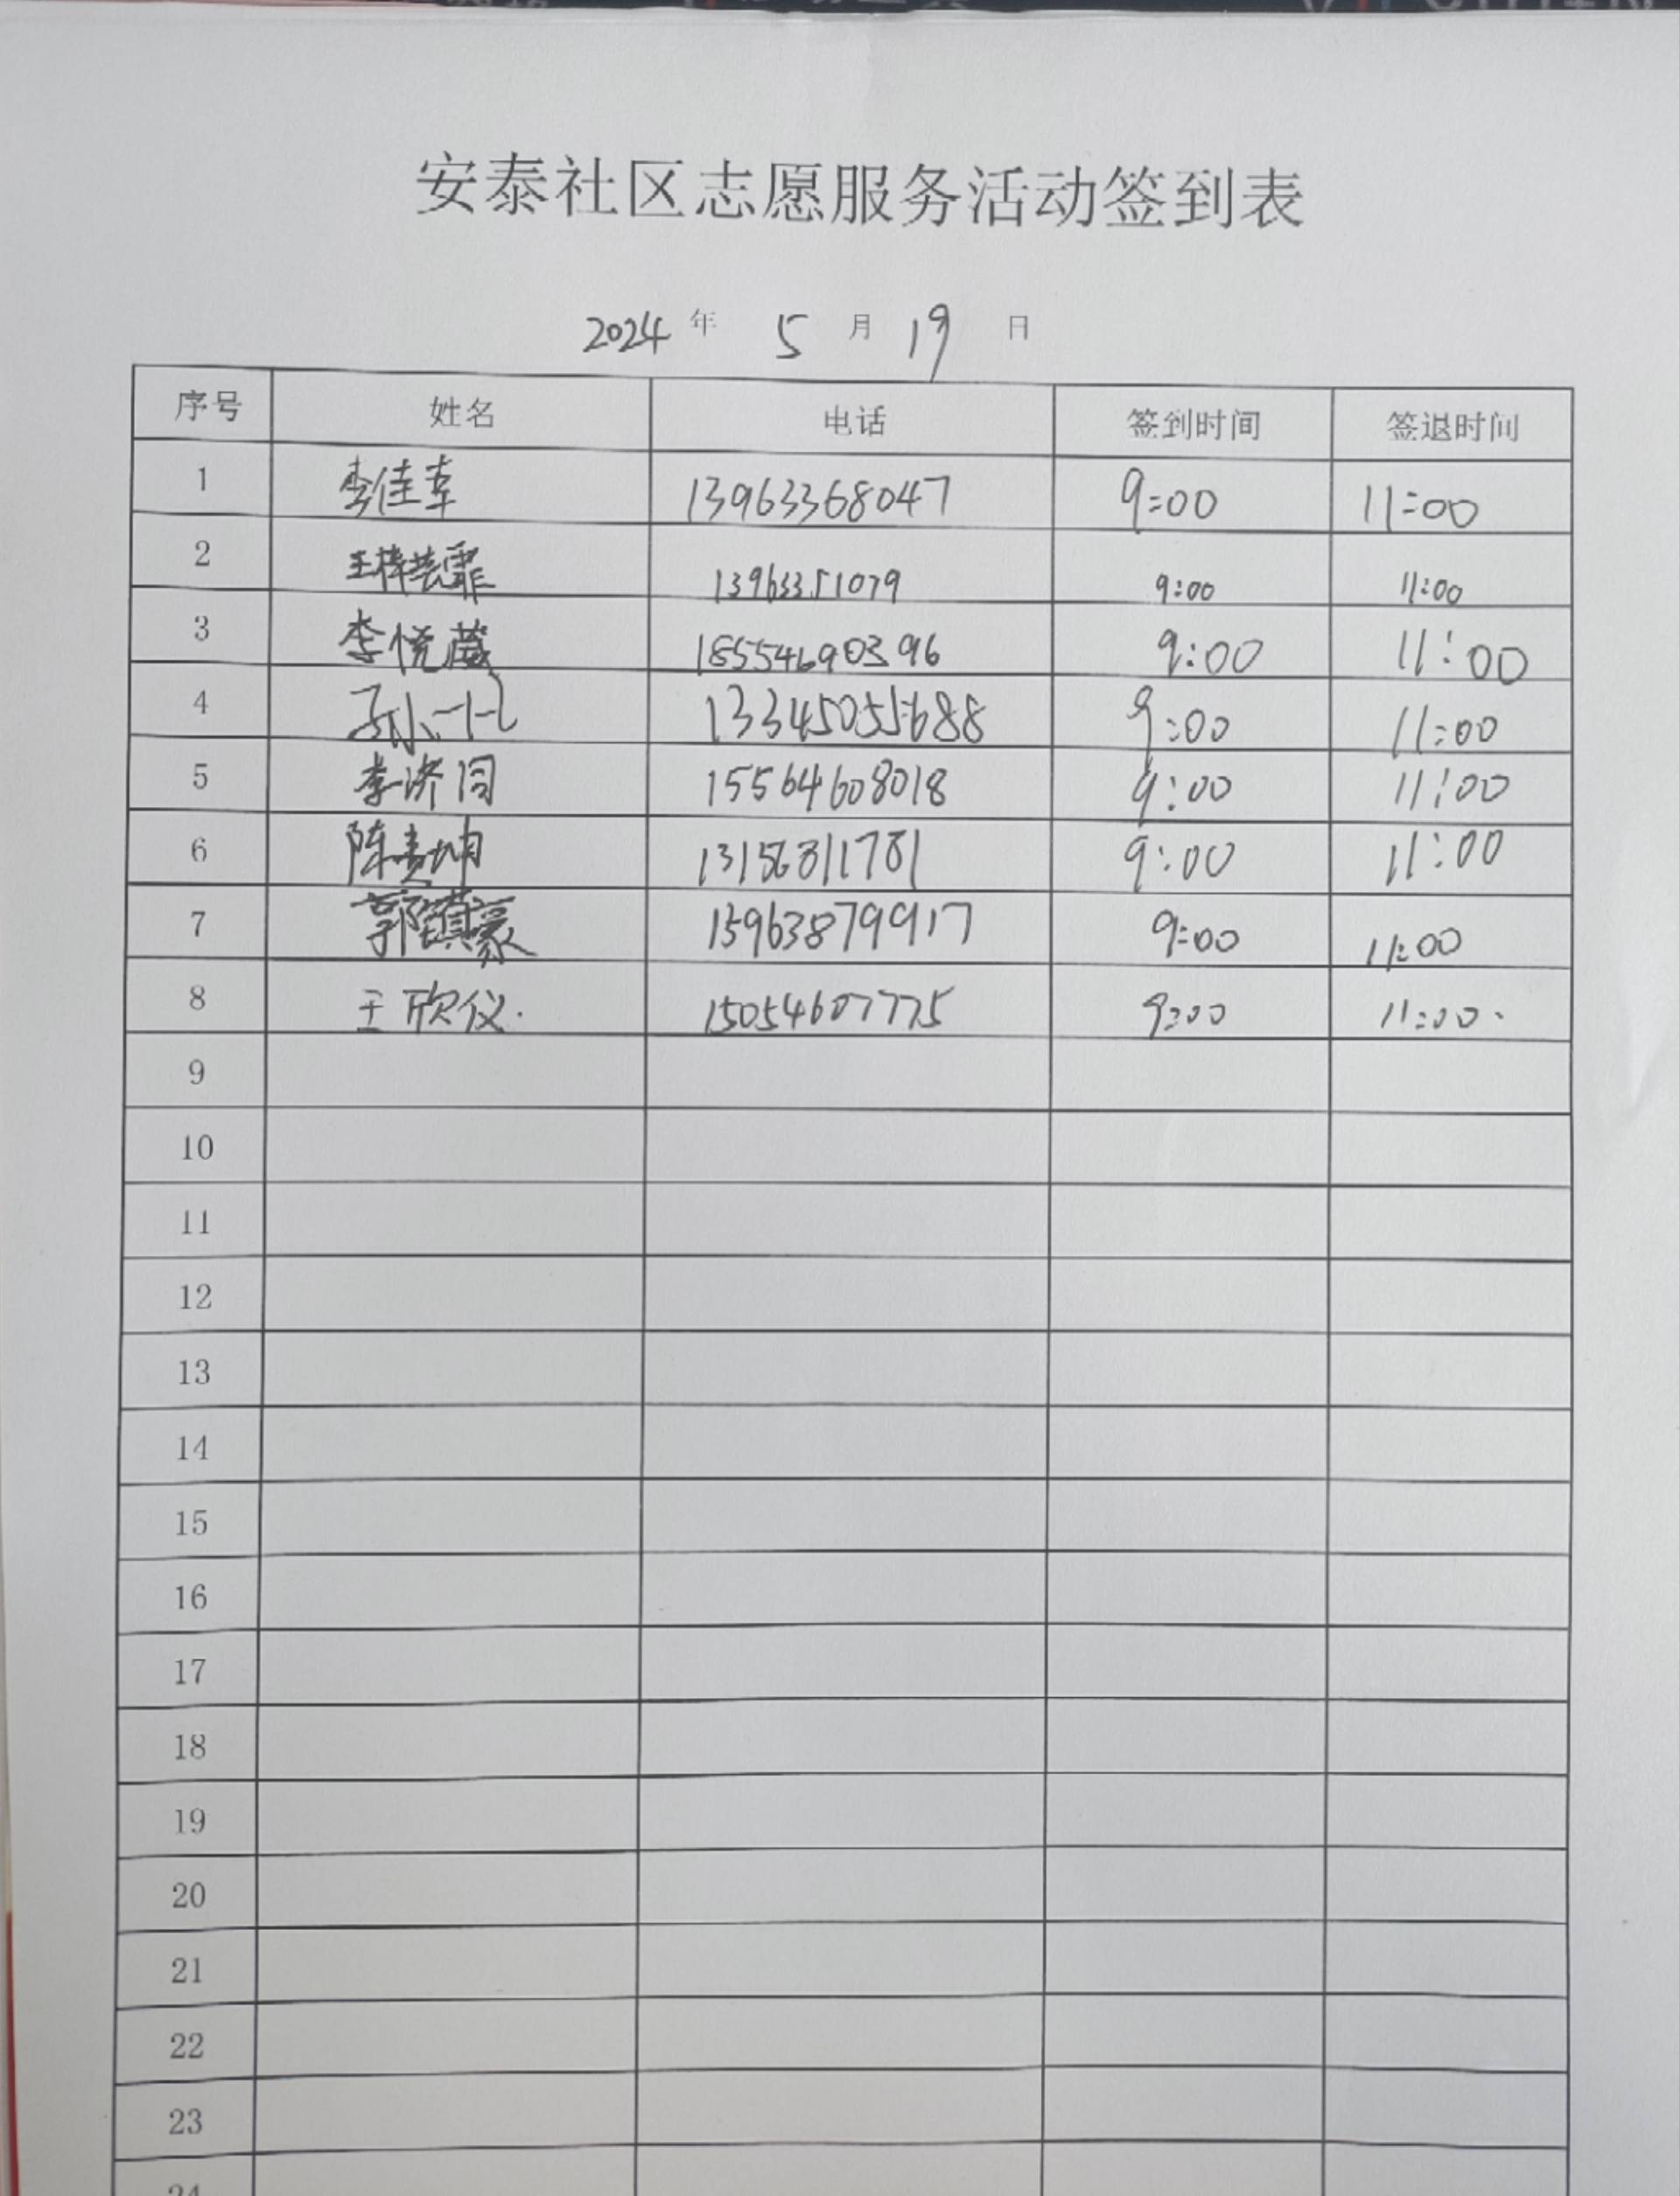 安泰社区志愿服务活动签到表
2024 年 5 月 19 日
序号 姓名 电话 签到时间 签退时间
1 李佳幸 13963368047 9:00 11:00
2 13963351079 9:00 11:00
3 李悦葳 18554690396 9:00 11:00
4 13345055688 9:00 11:00
5 李济同 15564608018 9:00 11:00
6 陈贵坤 13156811781 9:00 11:00
7 郭镇豪 15963879917 9:00 11:00
8 王欣仪. 15054607775 9:00 11:00.
9
10
11
12
13
14
15
16
17
18
19
20
21
22
23
24